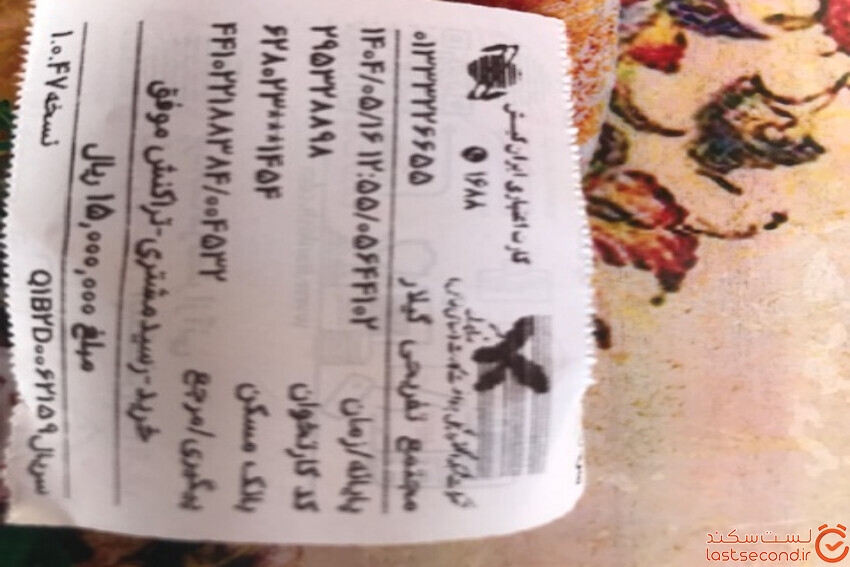 کارت اعتباری ایران کیش
۱۶۸۸
مجتمع تفریحی گیلار
۰۱۳۳۳۲۲۶۶۵۵
پایانه/زمان ۱۴۰۴/۰۵/۱۶ ۱۲:۵۵/۰۵۶۴۴۱۰۲
کد کارتخوان ۲۹۵۳۲۸۸۹۸
بانک مسکن ۶۲۸۰۲۳***۱۴۵۴
پیگیری/مرجع ۴۴۱۰۲۲۱۸۸۳۸۴/۰۰۴۵۳۲
خرید-رسید مشتری-تراکنش موفق
مبلغ ۱۵,۰۰۰,۰۰۰ ریال
سریال Q1B2D۰۰۶۲۱۵۹ نسخه ۱.۰.۴۷
لست‌سکند
lastsecond.ir